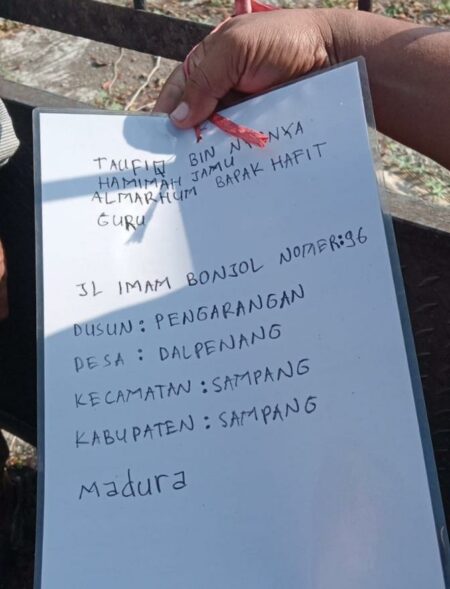 TAUFIQ BIN
HAMIMAH JAMU
ALMARHUM BAPAK HAFIT
GURU
JL IMAM BONJOL NOMER:96
DUSUN: PENGARANGAN
DESA : DALPENANG
KECAMATAN : SAMPANG
KABUPATEN : SAMPANG
Madura